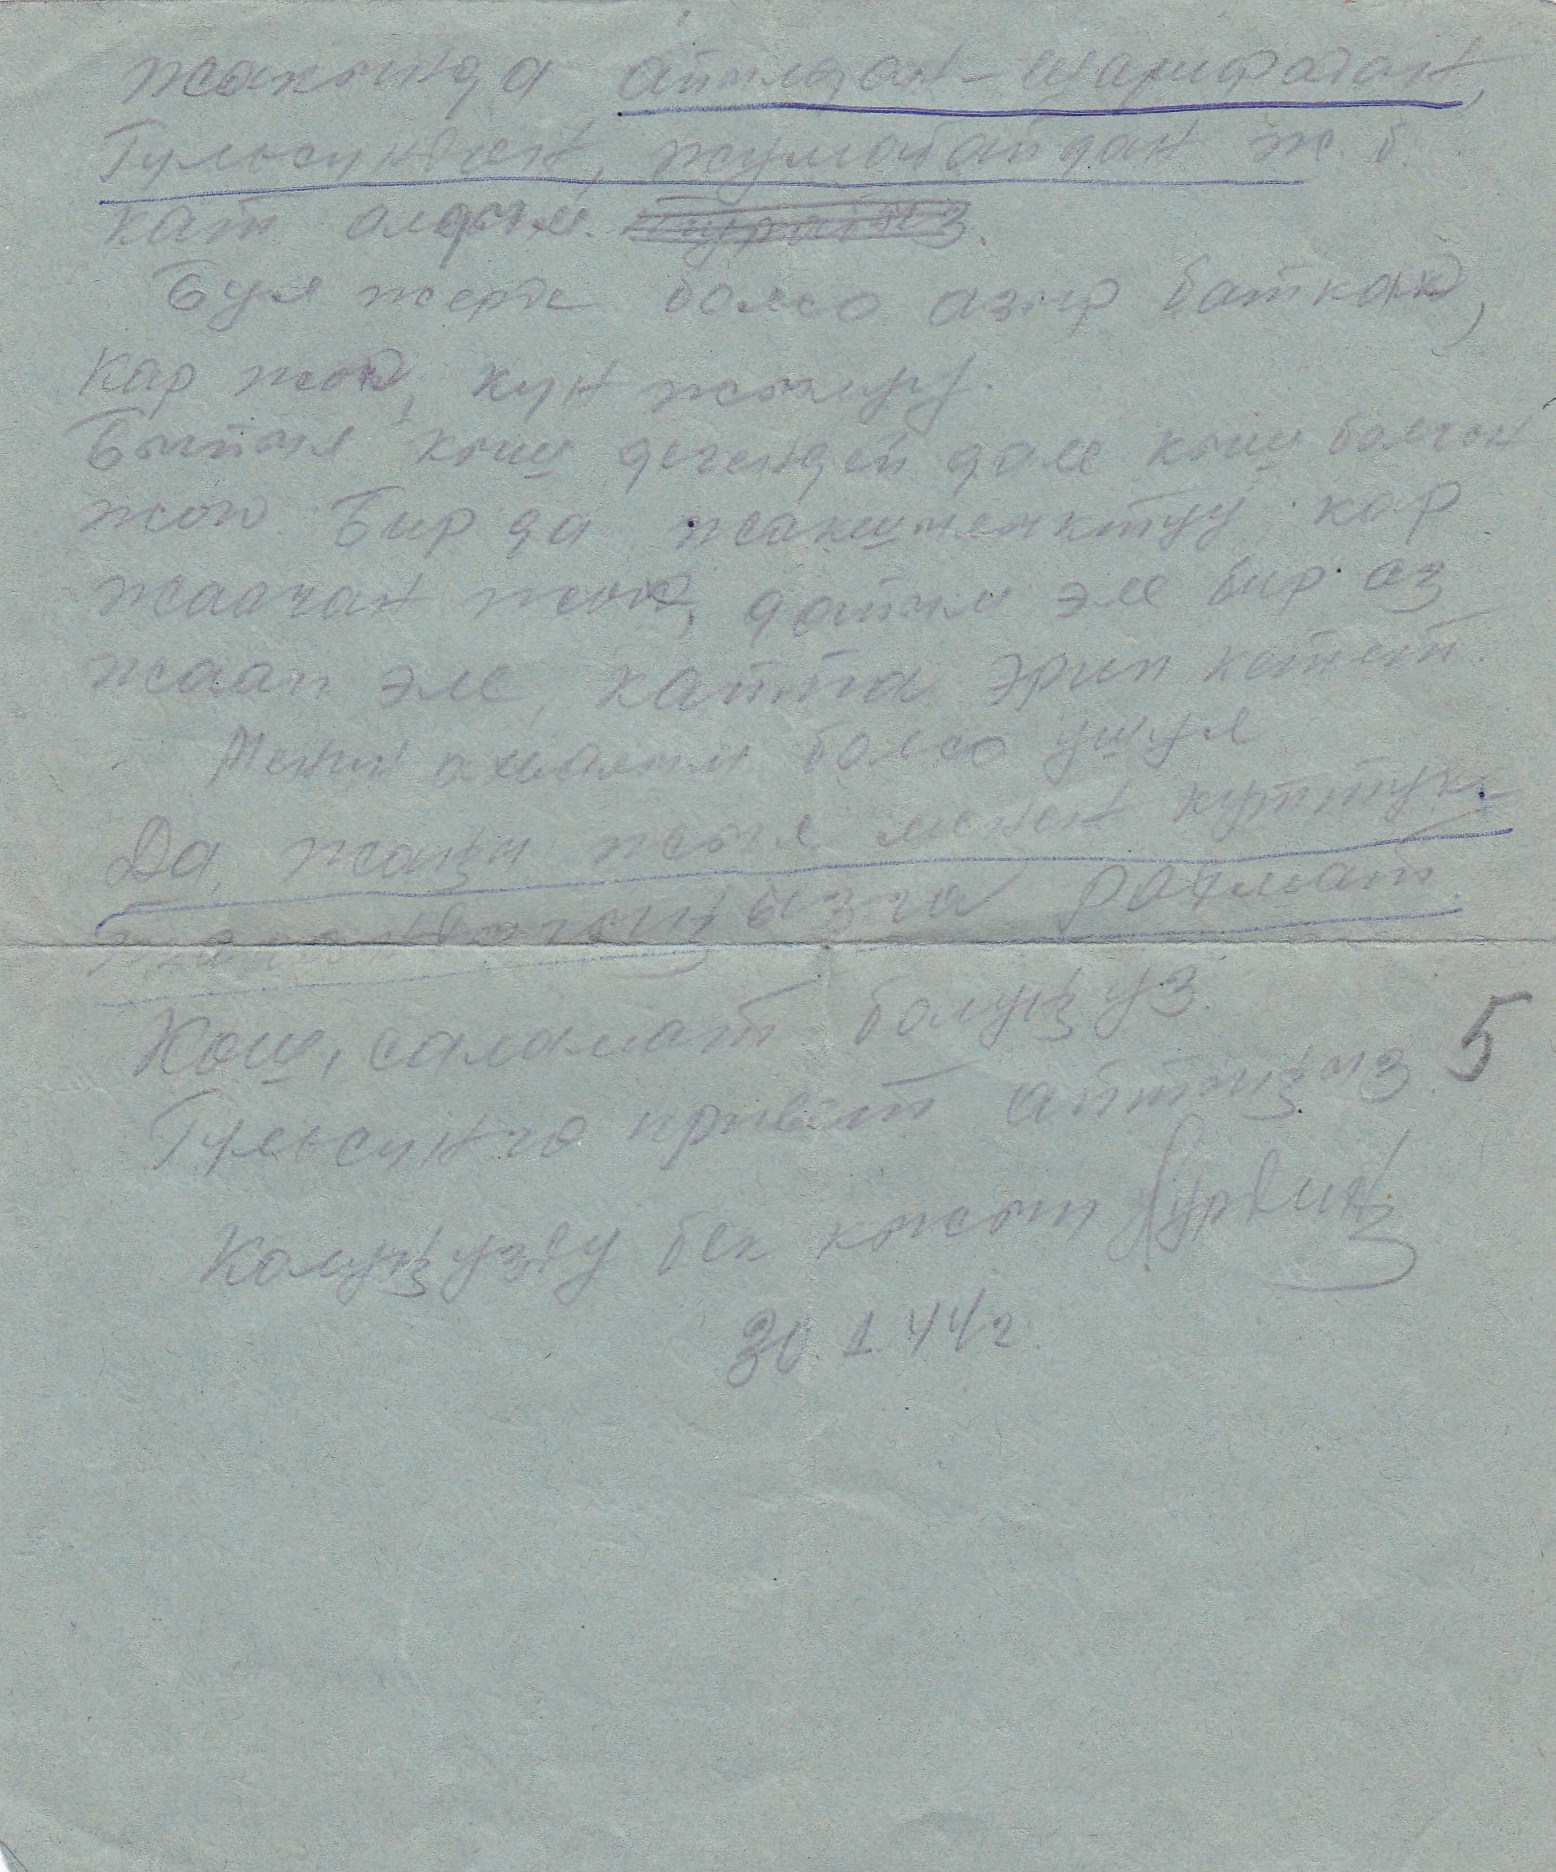 жакында айылдан - шарифадан,
Гульсундөн, жумабайдан ж. б.
кат алдым.
Бул жерде болсо азыр баткак,
кар жок, күн жылуу.
Быйыл кыш дегендей деле кыш болгон
жок Бир да жакшылыктуу кар
жааган жок, дайым эле бир аз
жаап эле, кайта эрип кетет.
Менин ахвалым болсо ушул
Да, жаңы жыл менен куттук-
ңызга рахмат.
Хош, саламат болуңуз.
Гульсунго привет айтыңыз.
5
Колуңузду бек кысып
30.1.44г.